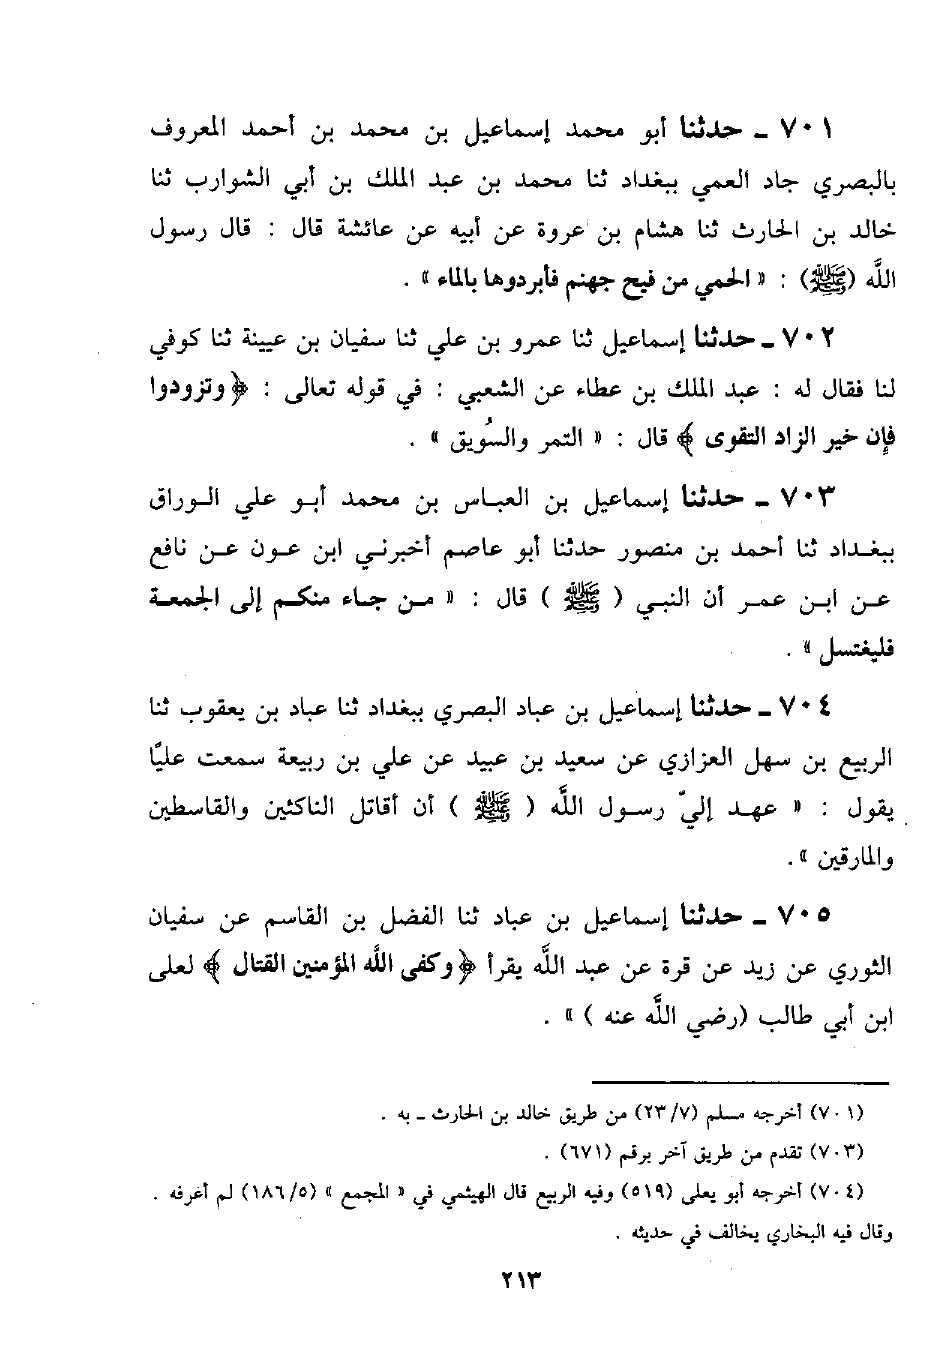 ٧٠١ ـ حدثنا أبو محمد إسماعيل بن محمد بن أحمد المعروف
بالبصري جاد العمي ببغداد ثنا محمد بن عبد الملك بن أبي الشوارب ثنا
خالد بن الحارث ثنا هشام بن عروة عن أبيه عن عائشة قال : قال رسول
اللَّه (ﷺ) : « الحمي من فيح جهنم فأبردوها بالماء » .
٧٠٢ ـ حدثنا إسماعيل ثنا عمرو بن علي ثنا سفيان بن عيينة ثنا كوفي
لنا فقال له : عبد الملك بن عطاء عن الشعبي : في قوله تعالى : ﴿ وتزودوا
فإن خير الزاد التقوى ﴾ قال : « التمر والسُويق » .
٧٠٣ ـ حدثنا إسماعيل بن العباس بن محمد أبو علي الوراق
ببغداد ثنا أحمد بن منصور حدثنا أبو عاصم أخبرني ابن عون عن نافع
عن ابن عمر أن النبي ( ﷺ ) قال : « من جاء منكم إلى الجمعة
فليغتسل » .
٧٠٤ ـ حدثنا إسماعيل بن عباد البصري ببغداد ثنا عباد بن يعقوب ثنا
الربيع بن سهل العزازي عن سعيد بن عبيد عن علي بن ربيعة سمعت عليًّا
يقول : « عهد إليّ رسول اللَّه ( ﷺ ) أن أقاتل الناكثين والقاسطين
والمارقين » .
٧٠٥ ـ حدثنا إسماعيل بن عباد ثنا الفضل بن القاسم عن سفيان
الثوري عن زيد عن قرة عن عبد اللَّه يقرأ ﴿ وكفى اللَّه المؤمنين القتال ﴾ لعلى
ابن أبي طالب (رضي اللَّه عنه ) » .
(٧٠١) أخرجه مسلم (٢٣/٧) من طريق خالد بن الحارث ـ به .
(٧٠٣) تقدم من طريق آخر برقم (٦٧١) .
(٧٠٤) أخرجه أبو يعلى (٥١٩) وفيه الربيع قال الهيثمي في « المجمع » (١٨٦/٥) لم أعرفه .
وقال فيه البخاري يخالف في حديثه .
٢١٣